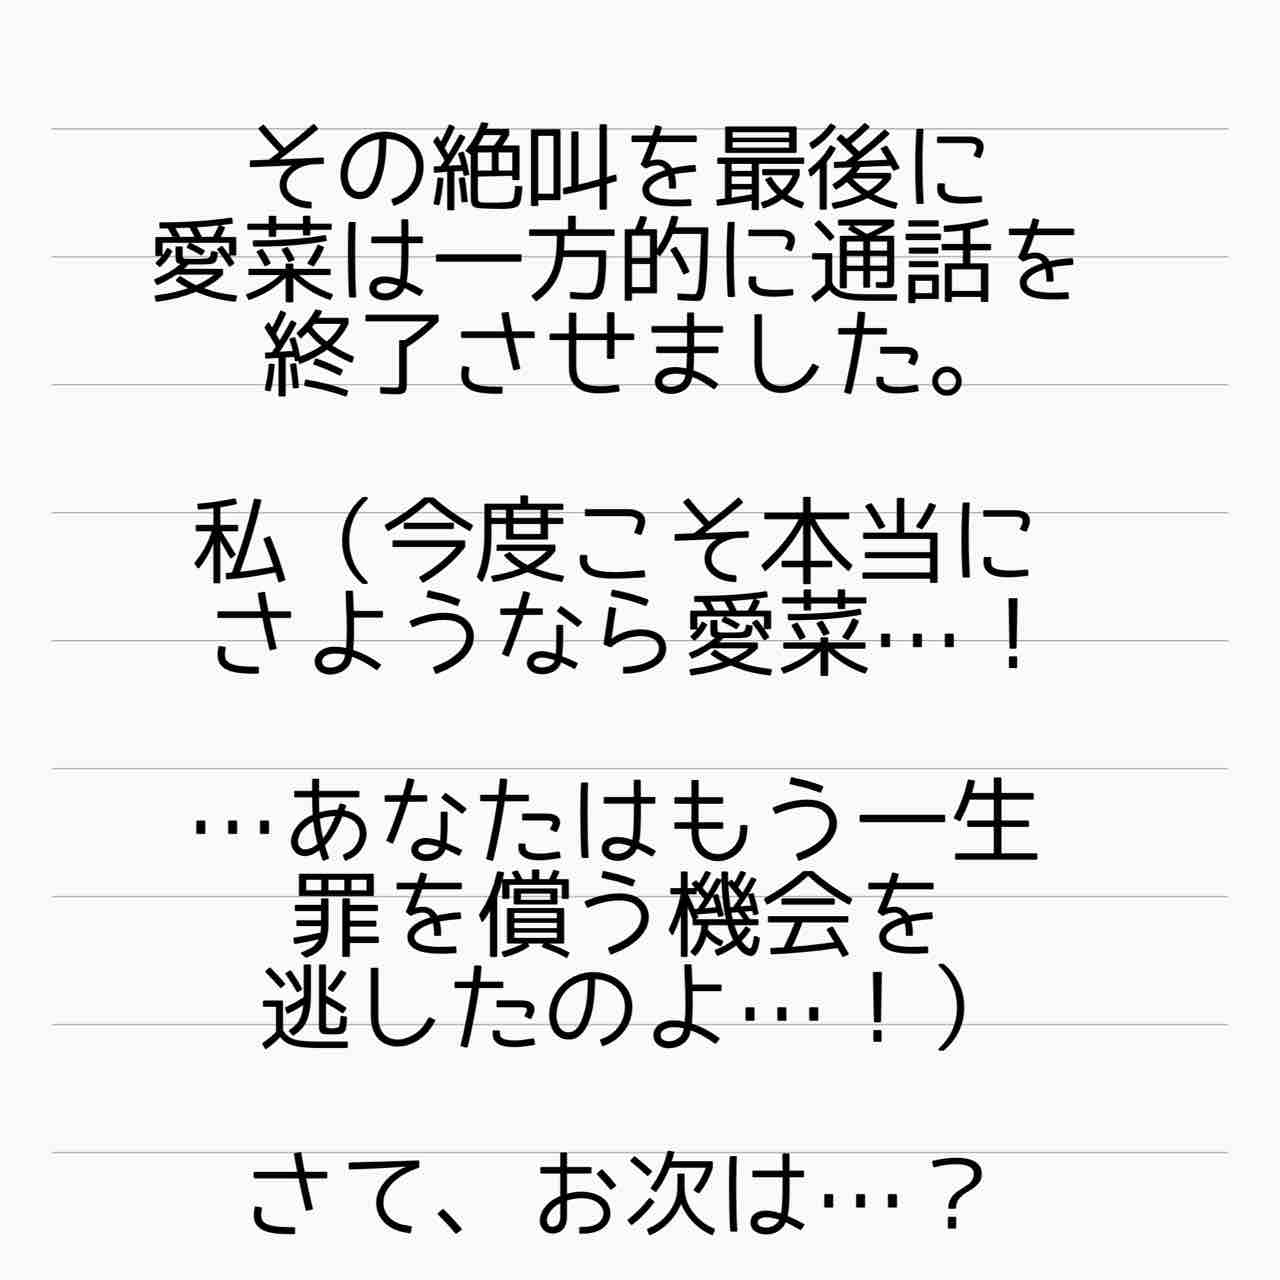 その絶叫を最後に
愛菜は一方的に通話を
終了させました。
私（今度こそ本当に
さようなら愛菜…！
…あなたはもう一生
罪を償う機会を
逃したのよ…！）
さて、お次は…？